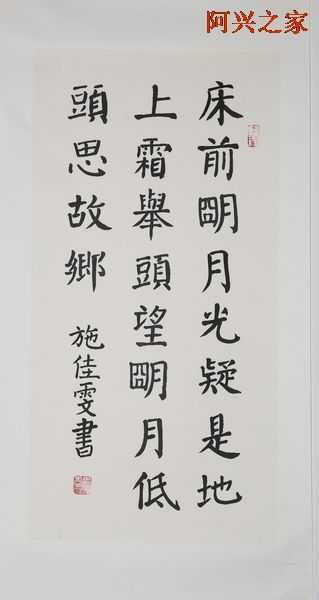 阿兴之家
床前朙月光疑是地
上霜舉頭望朙月低
頭思故鄉
施佳雯書